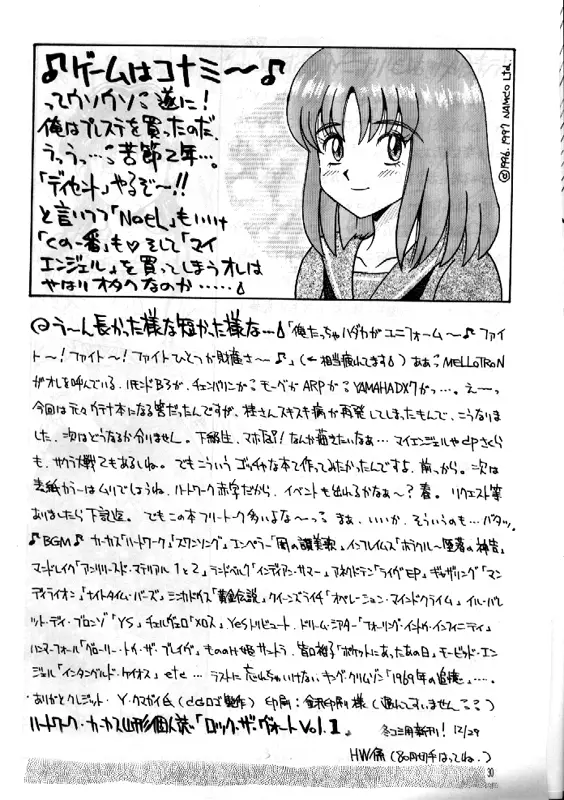 ♪ゲームはコナミ〜♪
ってウソウソ 遂に!
俺はプレステを買ったのだ
うっうっ…苦節2年…。
「ディセント」やるぞ〜!!
と言いつつ「NoëL」もいいけ
「くの一番」も♡そして「マイ
エンジェル」を買ってしまうオレは
やはりオタクなのか……
©1996,1997 NAMCO Ltd.
う〜ん長かった様な短かった様な…「俺たっちゃハダカがユニフォーム〜♪ファイ
ト〜!ファイト〜!ファイトひとつが財産さ〜♪」(←相当疲れてます)ああ MELLOTRON
がオレを呼んでいる。ハモンドB3が、チェンバリンが モーグが ARPが YAMAHA DX7がっ…。え〜っ
今回は元々 本になる筈だったんですが、桂さんスキスキ病が再発してしまったもんで、こうなりま
した。次はどうなるか分りません。下級生、マホ なんか描きたいなぁ…マイエンジェルや さくら
も、サクラ大戦てもあるしね。でもこういうゴッチャな本て作ってみたかったんですよ、前っから。次は
表紙カラーはムリでしょうね、ハートワーク赤字だから、イベントも出れるかなぁ〜?春。リクエスト等
ありましたら下記迄。でもこの本フリートーク多いよな〜っ まぁ、いいか、そういうのも…バタッ。
♪BGM♪カーカス「ハートワーク」「スワンソング」エンペラー「闇の讃美歌」インフレイムス「 神告」
マーマレイク「アンリリースド・マテリアル1と2」ランドベルク「インディアン・サマー」アネクドテン「ライヴEP」ギャザリング「マン
ディライオン」「ナイトタイム・バーズ」ミカドガイズ「黄金伝説」クイーンズライチ「オペレーション・マインドクライム」イル・バレ
ット・ディ・ブロンゾ「YS」チェルヴェロ「メロス」Yesトリビュート、ドリーム・シアター「フォーリング・イントゥ・インフィニティ」
ハンマーフォール「グローリー・トゥ・ザ・ブレイヴ」もののけ姫サントラ、谷口裕子「ポケットにあったあの日」モービッド・エン
ジェル「インタングルド・ケイオス」etc…ラストに忘れちゃいけない、キング・クリムゾン「1969年の追憶」….
ありがとクレジット・Y・クマガイ氏( ロゴ製作)印刷: 印刷様( すいません )
ハートワーク・カーカス山形個人誌・「ロック・ザ・ヴォートVol.1」 冬コミ用新刊! 12/29
HW係(80円切手はってね。)
30